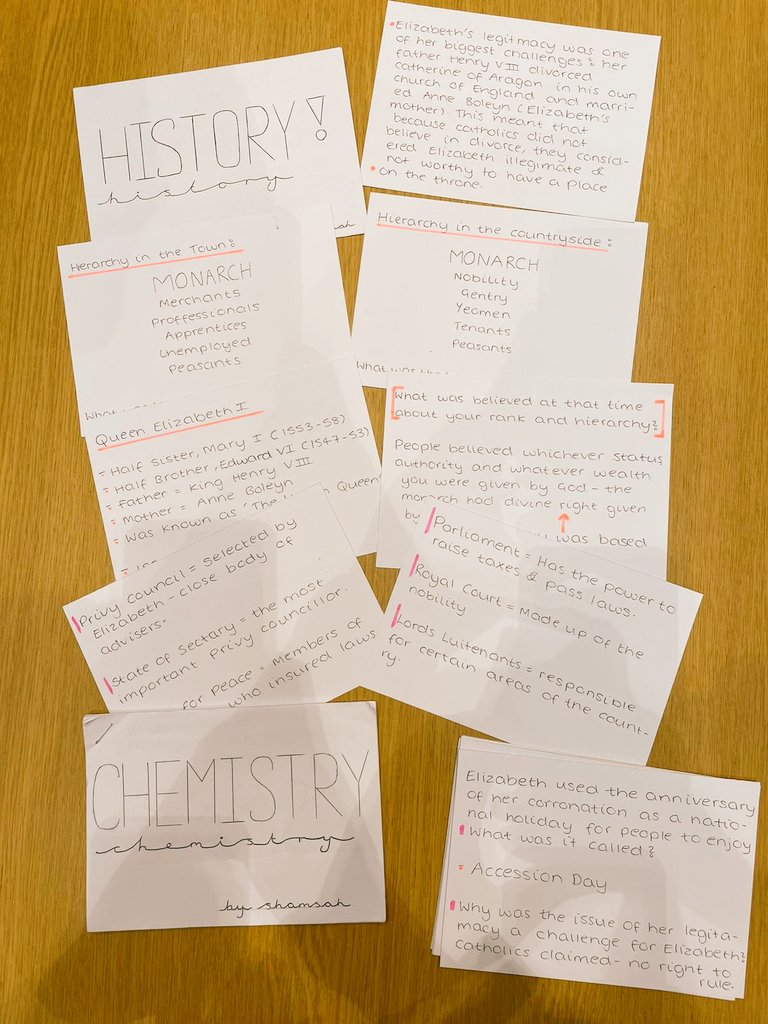 HISTORY!
history
Elizabeth's legitmacy was one
of her biggest challenges: her
father Henry VIII divorced
catherine of Aragon in his own
church of England and marri-
ed Anne Boleyn (Elizabeth's
mother). This meant that
because catholics did not
believe in divorce, they consid-
ered Elizabeth illegimate &
not worthy to have a place
on the throne.
Herarchy in the Town:
MONARCH
Merchants
Proffessionals
Apprentices
Unemployed
Peasants
Hierarchy in the countryside:
MONARCH
Nobility
Gentry
Yeomen
Tenants
Peasants
What was the
Queen Elizabeth I
- Half Sister, Mary I (1553-58)
- Half Brother, Edward VI (1547-53)
- Father = King Henry VIII
- Mother = Anne Boleyn
- Was known as 'The Queen
What was believed at that time
about your rank and hierarchy?
People believed whichever status
authority and whatever wealth
you were given by God - the
monarch had divine right given
by was based
Privy council = selected by
Elizabeth - close body of
advisers.
State of Sectary = the most
important privy councillor.
for Peace = Members of
who insured laws
Parliament = Has the power to
raise taxes & pass laws.
Royal Court = Made up of the
nobility
Lords Luitenants = responsible
for certain areas of the count-
ry.
CHEMISTRY
chemistry
by shamsah
Elizabeth used the anniversary
of her corronation as a natio-
nal holiday for people to enjoy
What was it called?
- Accession Day
Why was the issue of her legita-
macy a challenge for Elizabeth?
catholics claimed - no right to
rule.